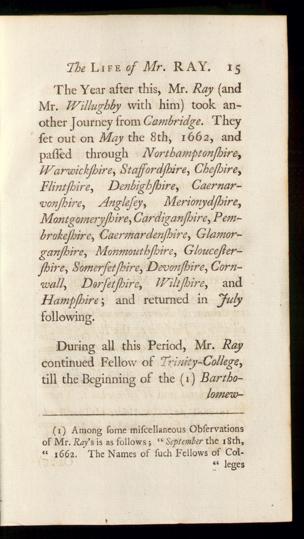 The LIFE of Mr. RAY. 15
The Year after this, Mr. Ray (and
Mr. Willughby with him) took an-
other Journey from Cambridge. They
ſet out on May the 8th, 1662, and
paſſed through Northamptonſhire,
Warwickſhire, Staffordſhire, Cheſhire,
Flintſhire, Denbighſhire, Caernar-
vonſhire, Angleſey, Merionydſhire,
Montgomeryſhire, Cardiganſhire, Pem-
brokeſhire, Caermardenſhire, Glamor-
ganſhire, Monmouthſhire, Glouceſter-
ſhire, Somerſetſhire, Devonſhire, Corn-
wall, Dorſetſhire, Wiltſhire, and
Hampſhire; and returned in July
following.
During all this Period, Mr. Ray
continued Fellow of Trinity-College,
till the Beginning of the (1) Bartho-
lomew-
(1) Among ſome miſcellaneous Obſervations
of Mr. Ray's is as follows; " September the 18th,
" 1662. The Names of ſuch Fellows of Col-
" leges